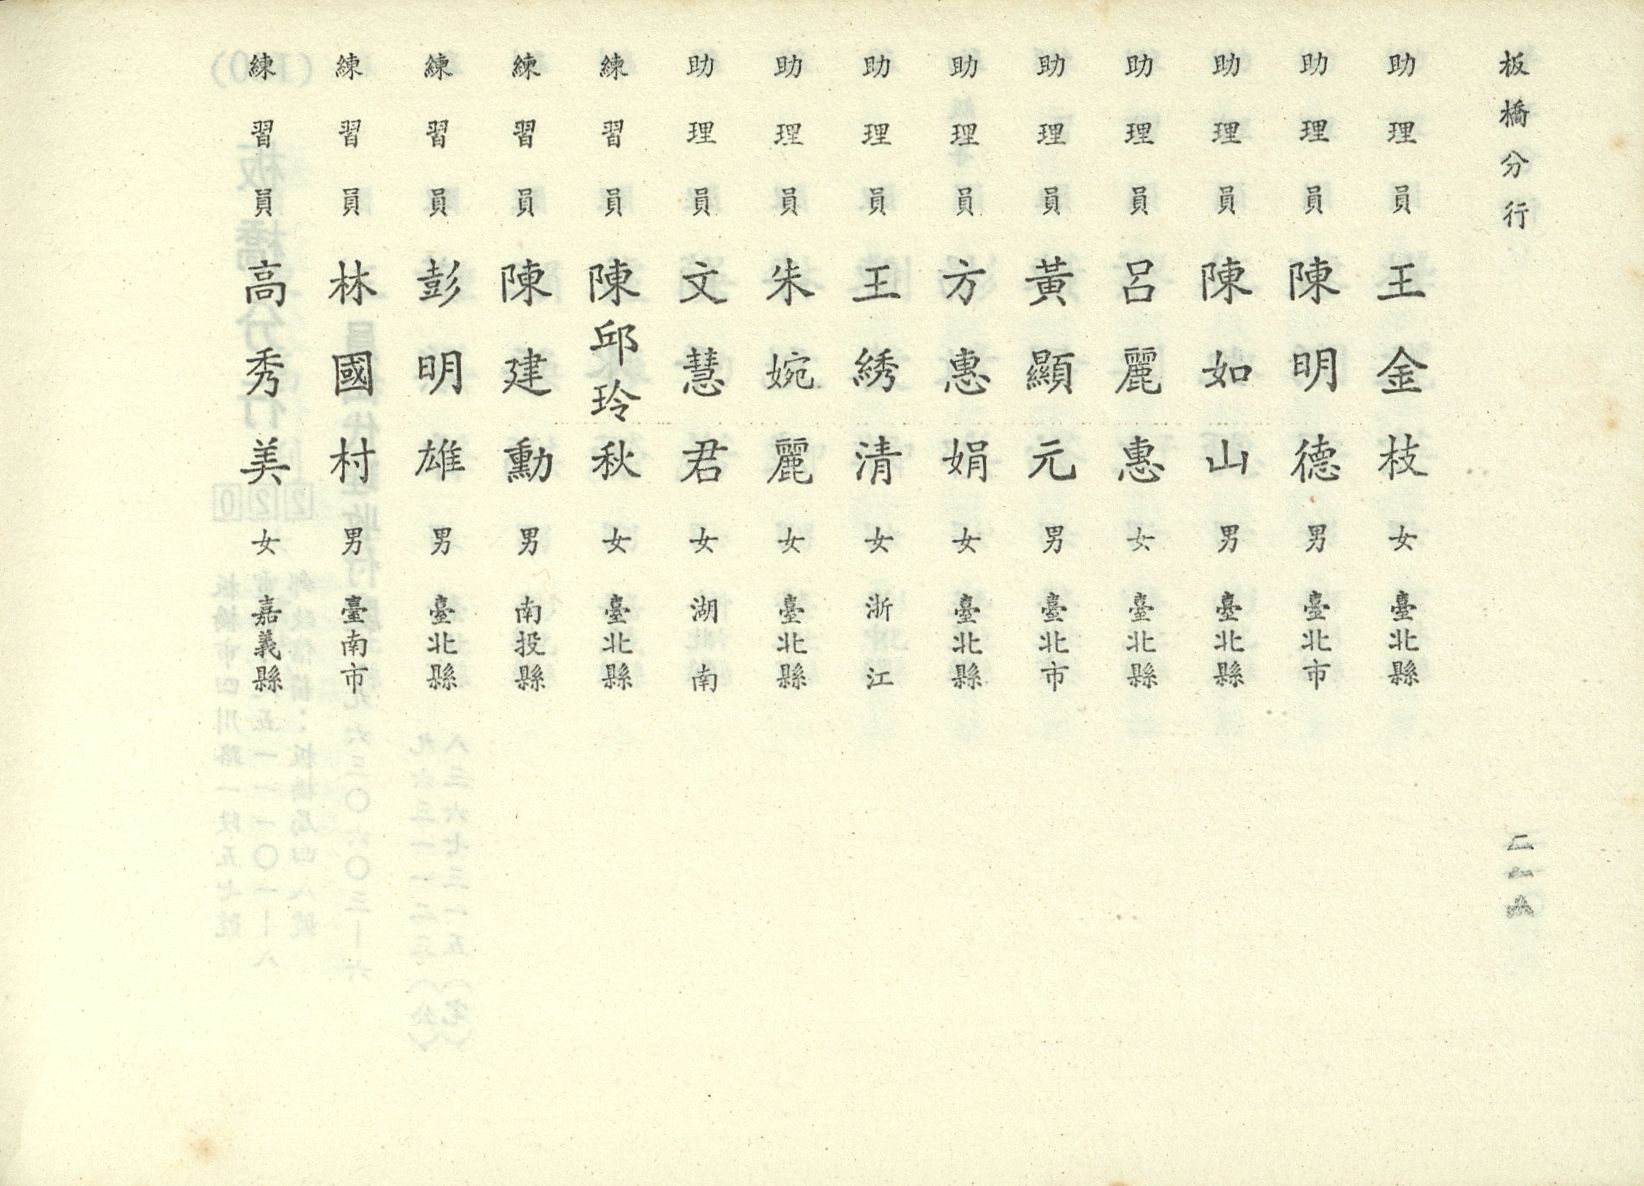 板橋分行
助理員 王金枝 女 臺北縣
助理員 陳明德 男 臺北市
助理員 陳如山 男 臺北縣
助理員 呂麗惠 女 臺北縣
助理員 黃顯元 男 臺北市
助理員 方惠娟 女 臺北縣
助理員 王綉清 女 浙江
助理員 朱婉麗 女 臺北縣
助理員 文慧君 女 湖南
練習員 陳邱玲秋 女 臺北縣
練習員 陳建勳 男 南投縣
練習員 彭明雄 男 臺北縣
練習員 林國村 男 臺南市
練習員 高秀美 女 嘉義縣